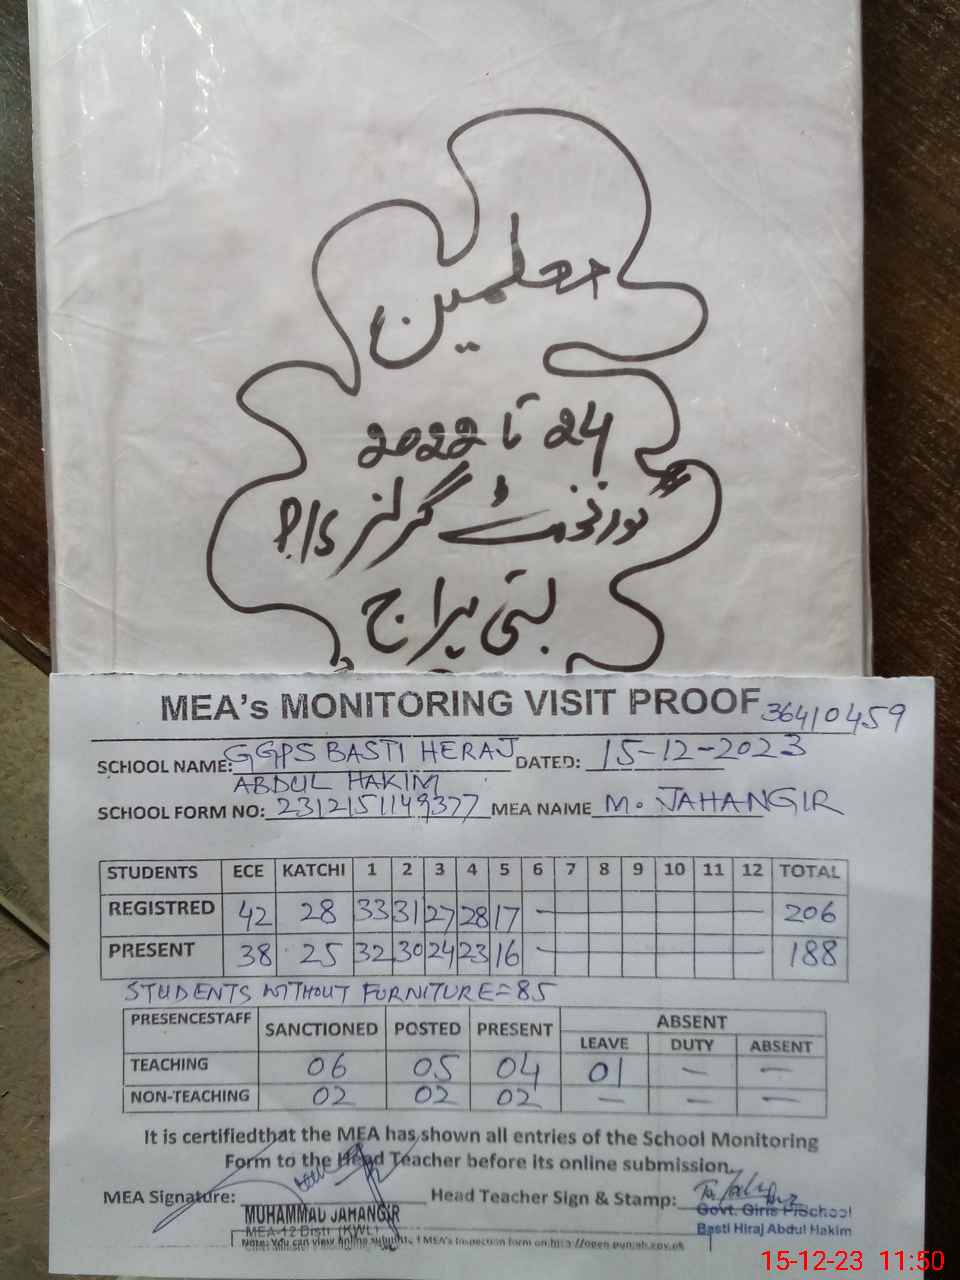 معلمین
2022 تا 24
گورنمنٹ گرلز P/S
بستی ہراج
MEA's MONITORING VISIT PROOF 36410459
SCHOOL NAME: GGPS BASTI HERAJ DATED: 15-12-2023
ABDUL HAKIM
SCHOOL FORM NO: 2312151149377 MEA NAME M. JAHANGIR
STUDENTS ECE KATCHI 1 2 3 4 5 6 7 8 9 10 11 12 TOTAL
REGISTRED 42 28 33 31 27 28 17 206
PRESENT 38 25 32 30 24 23 16 188
STUDENTS WITHOUT FURNITURE=85
PRESENCESTAFF SANCTIONED POSTED PRESENT ABSENT
LEAVE DUTY ABSENT
TEACHING 06 05 04 01 — —
NON-TEACHING 02 02 02 — — —
It is certifiedthat the MEA has shown all entries of the School Monitoring
Form to the Head Teacher before its online submission.
MEA Signature: Head Teacher Sign & Stamp:
MUHAMMAD JAHANGIR
Govt. Girls P/School
MEA-12 Distt (KWL)
Basti Hiraj Abdul Hakim
Note: You can view online submitted MEA's Inspection form on http://open.punjab.gov.pk
15-12-23 11:50